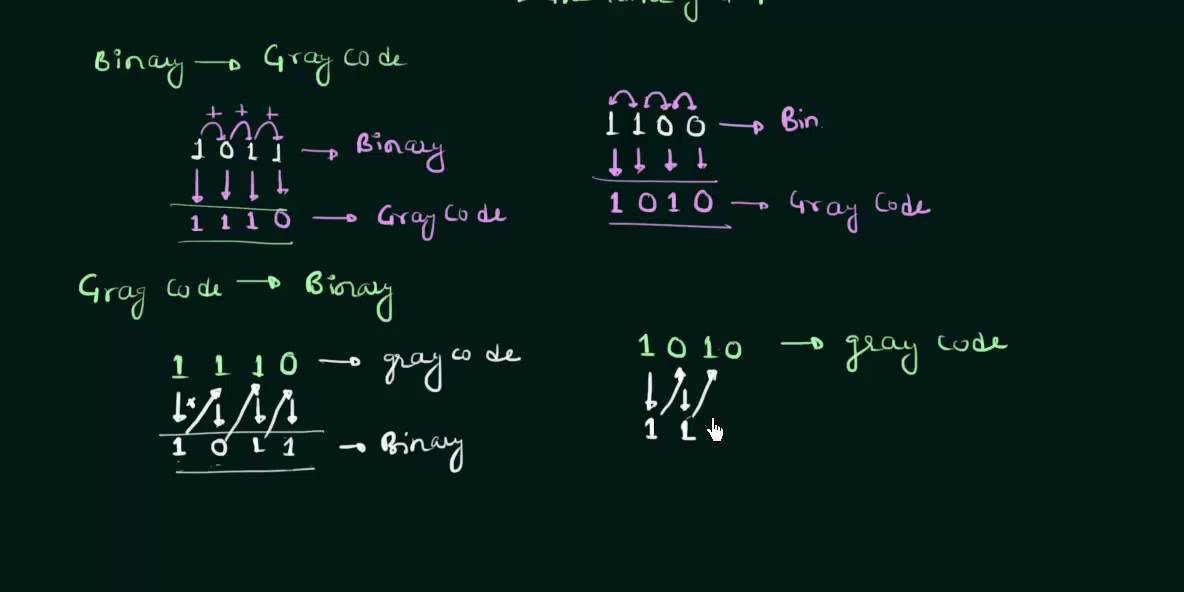 Binary → Gray Code
+ + +
1 0 1 1 → Binary
1 1 1 0 → Gray Code
1 1 0 0 → Bin
1 0 1 0 → Gray Code
Gray Code → Binary
1 1 1 0 → gray code
1 0 1 1 → Binary
1 0 1 0 → gray code
1 1